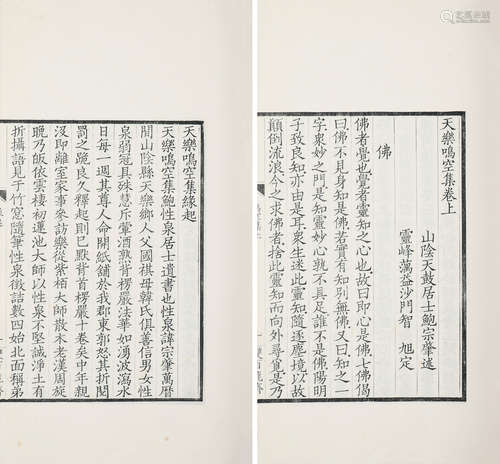 天樂鳴空集卷上
山陰天鼓居士鮑宗肇述
靈峰蕅益沙門智旭定
佛
佛者覺也覺者靈知之心也故曰即心是佛七佛偈
曰佛不見身知是佛若實有知別無佛又曰知之一
字衆妙之門是知靈妙心孰不具足誰不是佛陽明
子致良知亦由是耳衆生迷此靈知隨逐塵境以故
顛倒流浪今之求佛者捨此靈知而向外尋覓是乃
天樂鳴空集緣起
天樂鳴空集鮑性泉居士遺書也性泉諱宗肇萬曆
間山陰縣天樂鄉人父國棋母韓氏俱善信男女性
泉弱冠具殊慧斥葷酒熟背楞嚴法華如湧波瀉水
日每一週其尊人命開紙舖於我郡東郭怒其折閱
罰之跪良久釋起則已默背首楞嚴十卷矣中年親
沒即離室家事來訪樂從紫柏大師散木老漢周旋
晚乃皈依雲棲初蓮池大師以性泉不堅誠淨土有
折攝語見于竹窓隨筆性泉徵詰數四始北面稱弟